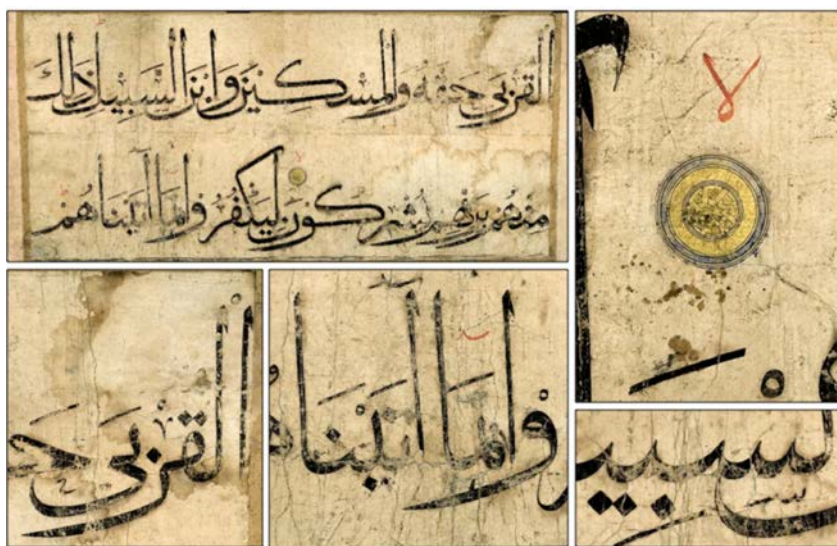 القربى حقه والمسكين وابن السبيل ذلك
منهم بربهم يشركون ليكفروا بما آتيناهم
لا
القربى حـ
وا بما آتيناهـ
سبيـ